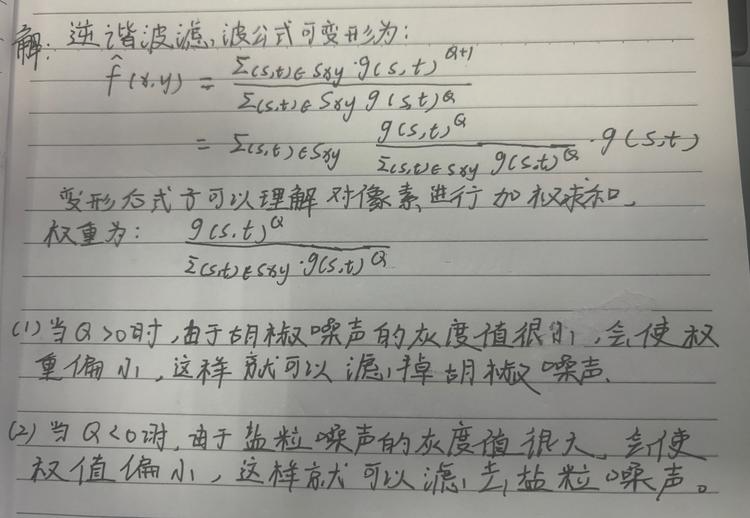 解：逆谐波滤波公式可变形为：
f̂(x,y) = Σ(s,t)∈Sxy·g(s,t)^Q+1 / Σ(s,t)∈Sxy g(s,t)^Q
= Σ(s,t)∈Sxy g(s,t)^Q / Σ(s,t)∈Sxy g(s,t)^Q ·g(s,t)
变形公式亍可以理解对像素进行加权求和。
权重为： g(s,t)^Q / Σ(s,t)∈Sxy·g(s,t)^Q
(1)当Q>0时，由于胡椒噪声的灰度值很小，会使权
重偏小，这样就可以滤掉胡椒噪声.
(2)当Q<0时，由于盐粒噪声的灰度值很大，会使
权值偏小，这样就可以滤去盐粒噪声。